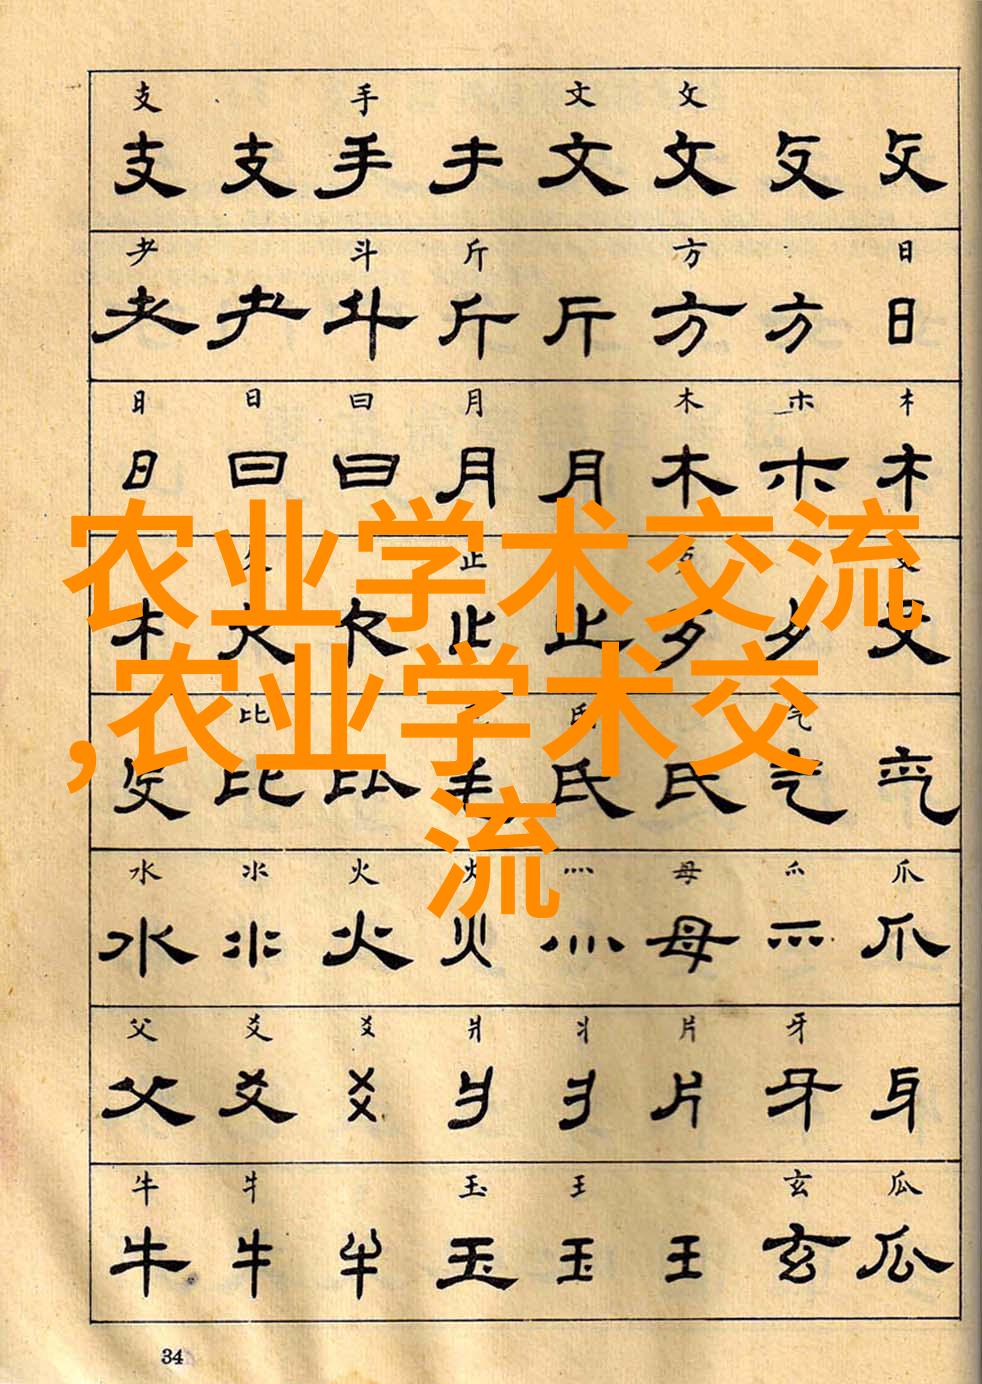 支 手 文 攵
支 支 手 文 攵
耂 斗 斤 方 日
斗 斤 斤 方 方 日
日 日 曰 月 木 朩
日 曰 曰 月 月 木 朩
农业学术交流
止 歹
木 止 止 歹 歹
,农业学术交
比 气
比 比 毛 氏 氏 气
流
水 氺 火 灬 母 爫 爪
水 氺 火 火 灬 母 爫 爪
父 爻 爻 爿 丬 片 牙
父 爻 爻 爿 丬 片 牙
牛 牜 玉 王 玄 瓜
牛 牛 牛 玉 玉 王 玄 瓜
34